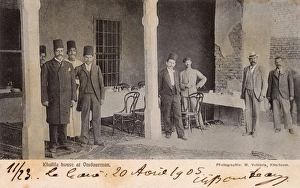 Khalifa house at Omdourman.
Photographie: M. Venieris, Khartoum.
11/23. le Caire. 20 Avril 1905